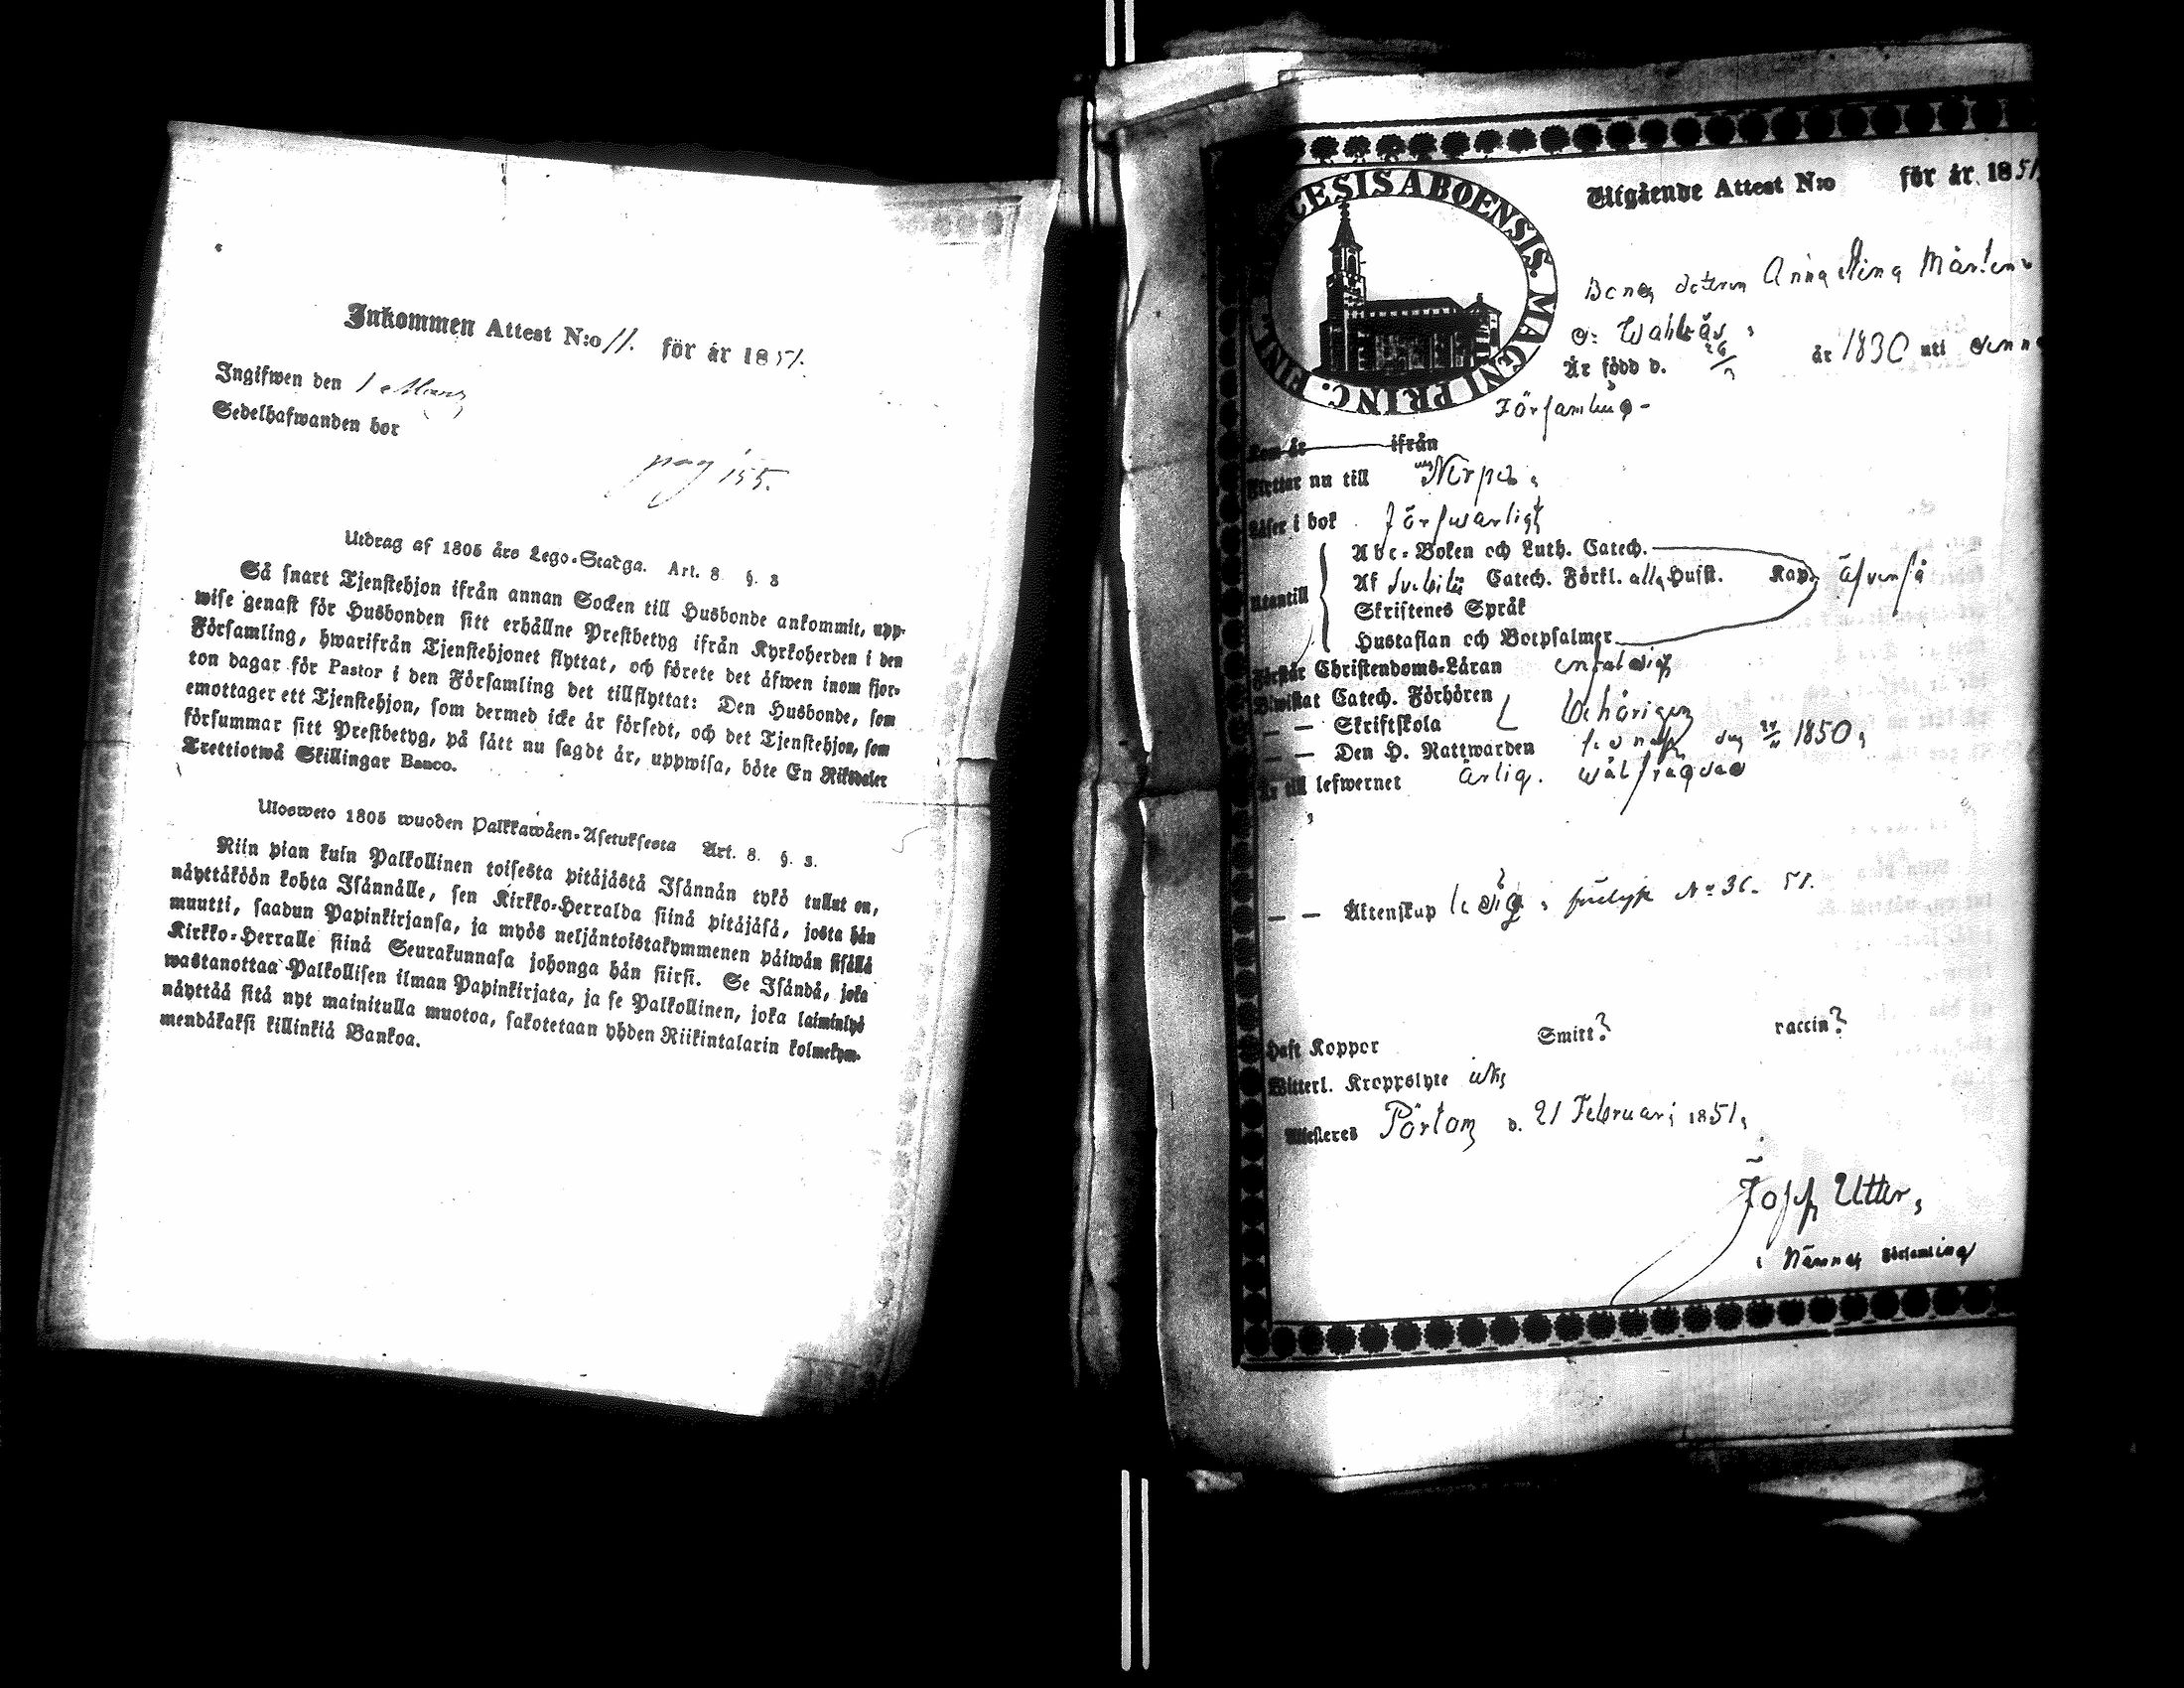 Inkommen Attest N:o 11. för år 1851.
Ingifwen den 1 Mars
Sedelhafwanden bor
pag 155.
Utdrag af 1805 års Lego-Stadga. Art. 8 §. 3
Så snart Tjenstehjon ifrån annan Socken till Husbonde ankommit, upp-
wise genast för Husbonden sitt erhållne Prestbetyg ifrån Kyrkoherden i den
Församling, hwarifrån Tjenstehjonet flyttat, och förete det äfwen inom fjor-
ton dagar för Pastor i den Församling det tillflyttat: Den Husbonde, som
emottager ett Tjenstehjon, som dermed icke är försedt, och det Tjenstehjon, som
försummar sitt Prestbetyg, på sätt nu sagdt är, uppwisa, böte En Riksdaler
Trettiotwå Skillingar Banco.
Ulosweto 1805 wuoden Palkkawäen-Asetuksesta Art. 8. §. 3.
Niin pian kuin Palkollinen toisesta pitäjästä Isännän tykö tullut on,
näyttäköön kohta Isännälle, sen Kirkko-Herralda siinä pitäjäsä, josta hän
muutti, saadun Papinkirjansa, ja myös neljäntoistakymmenen päiwän sisällä
Kirkko-Herralle siinä Seurakunnasa johonga hän siirsi. Se Isändä, joka
wastanottaa Palkollisen ilman Papinkirjata, ja se Palkollinen, joka laiminlyö
näyttää sitä nyt mainitulla muotoa, sakotetaan yhden Riikintalarin kolmekym-
mendäkaksi killinkiä Bankoa.
DIOECESIS ABOENSIS. MAGNI PRINC. FINL.
Utgående Attest N:o för år 1851
Anna Stina Mårtens
Är född d. 26/ år 1830 uti denna
Församling
Kom år ifrån
Flyttar nu till Nerpes
Läser i bok försvarligt
Abc-Boken och Luth. Catech.
Af Svebilii Catech. Förkl. alla Husst. Kap. äfvenså
Utantill
Skriftenes Språk
Hustaflan och Botpsalmer
Förstår Christendoms-Läran enfaldigt
Biwistat Catech. Förhören
— — Skriftskola behörigen
— — Den H. Nattwarden senast den 1850
Är till lefwernet ärlig. wälfrägdad
— — Äktenskap ledig N:o 36. 51.
Haft Koppor Smitt? vaccin?
Witterl. Kroppslyte
Attesteras Pörtom d. 21 Februari 1851
Utter
i Nämnda Församling